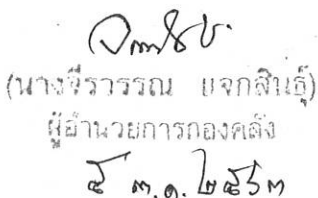 (นางจีรวรรณ แจกสินธุ์)
ผู้อำนวยการกองคลัง
๕ ต.ค. ๒๕๖๓